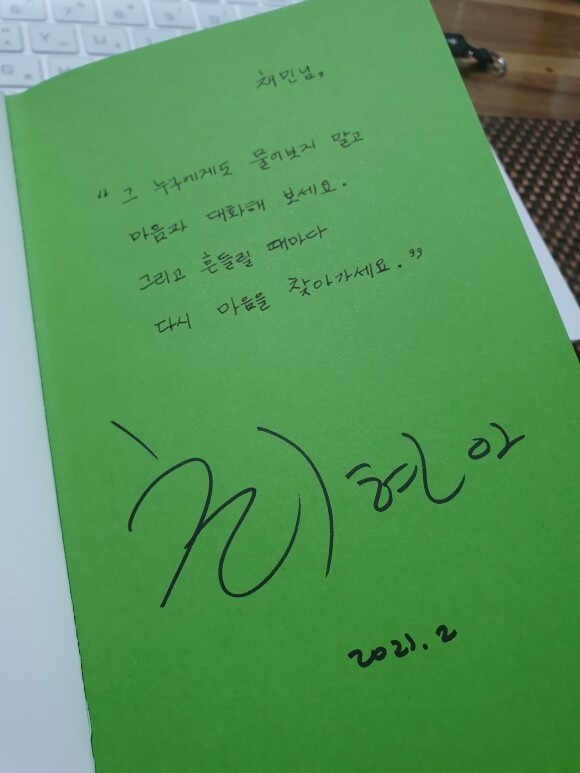 채민님,
“ 그 누구에게도 물어보지 말고
마음과 대화해 보세요.
그리고 흔들릴 때마다
다시 마음을 찾아가세요.”
최현아
2021. 2